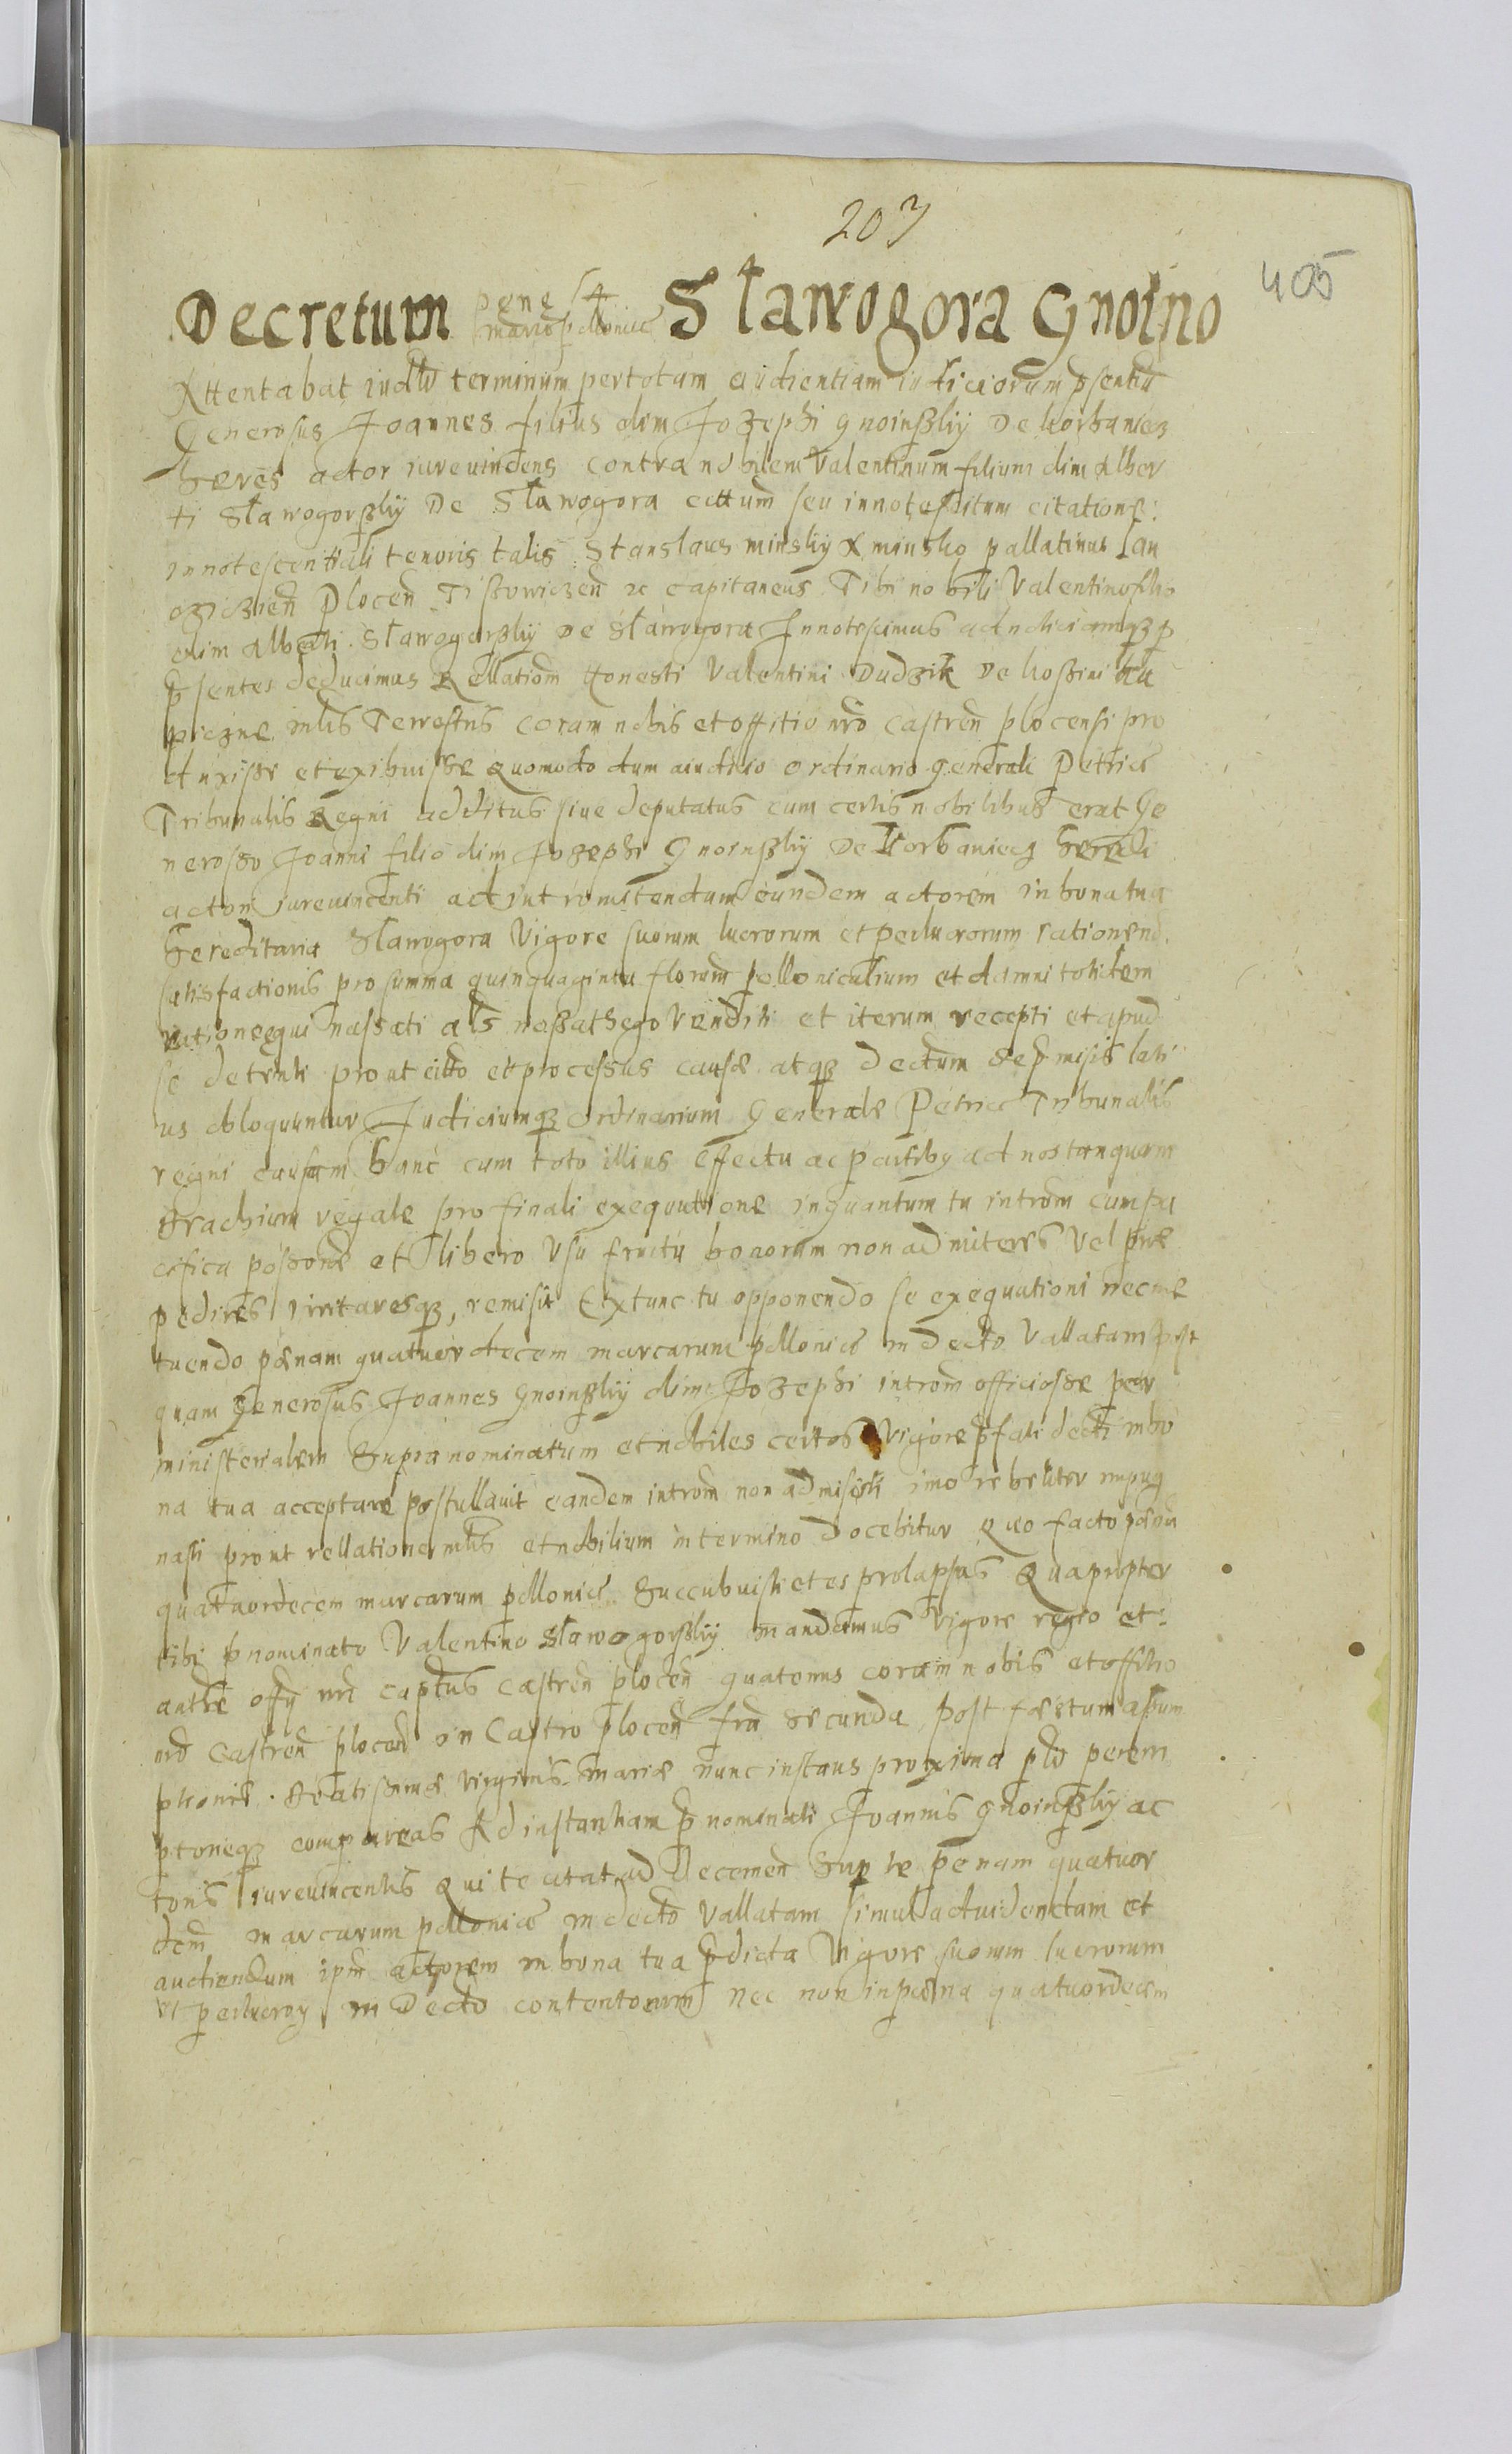 203
405
Decretum pene 14 Sławogora Gnoino
Attentabat terminum per totam audientiam iudiciorum psentiū
Generosus Joannes filius olim Jozephi gnoinßky De korbaniecz
heres actor iureuincens contra nobilem Valentinum filium olim Alber
ti Sławogorßky De Sławogora cittum seu innotescitum citatione:
innotescentiali tenoris talis Stanslaus minsky x minsko pallatinus lan
cziczien Plocen capitaneus Tibi nobili Valentino filio
olim Alberti Sławogorßky De Sławogora Innotescimus ad
psentes deducimus Rellationem Honesti Valentini Dudzik De
mlis Terrestris coram nobis et offitio nro castren plocensi pro
duxisse et exibuisse Quomodo dum a iudicio ordinario generali Petric
Tribunalis Regni additus siue deputatus cum certis nobilibus erat Ge
nerosso Joanni filio olim Jozephi Gnoinßky De korbaniecz heredi
actori iureuincenti ad intromitendum eundem actorem in bona tua
hereditaria Sławogora Vigore suorum lucrorum et perlucrorum ratione
satisfactionis pro summa quinquaginta florum polloniculium et damni totidem
ratione equi nassati als naßathego Venditi et iterum recepti et apud
se detenti prout citto et processus causæ atqz dectum se pmisis lati
us obloquuntur Judiciumqz ordinarium Generale Petric Tribunalis
regni causam hanc cum toto illius effectu ac partiby ad nos tanquam
Brachium regale pro finali exequutione inquantum tu introm cum pa
cifica poßione et libero Vsu fructu bonorum non admiteres Vel præ
pedires irritaresqz, remisit Extunc tu opponendo se exequationi nec me
tuendo pænam quatuordecem marcarum pollonic in decto Vallatam post
quam Generosus Joannes Gnoinßky olim Jozephi introm officiosse per
ministerialem Supra nominatum et nobiles certos Vigore pfati decti in bo
na tua acceptare postullauit eandem introm non admisisti imo rebeliter impug
nasti prout rellatione mlis et nobilium in termino docebitur Quo facto pænã
quatuordecem marcarum pollonic Succubuisti et es prolapsus Quapropter
tibi pnominato Valentino Sławogorßky mandamus Vigore regio et:
authe offy nri captus castren plocen quatenus coram nobis et offitio
nro Castren plocen in Castro plocen fria secunda post fæstum assum
ptionis. Beatissimæ Virginis Mariæ nunc instans proxima pro perem
ptorieqz compareas Ad instantiam pnominati Joannis gnoinßky ac
toris iureuincentis Qui te citat ad Decernen Super te penam quatuor
dem marcarum pollonic in decto Vallatam simul ad uidendam et
audiendum ipm actorem in bona tua pdicta Vigore suorum lucrorum
et perlucroy in Decto contentorum nec non in pœna quatuordecem